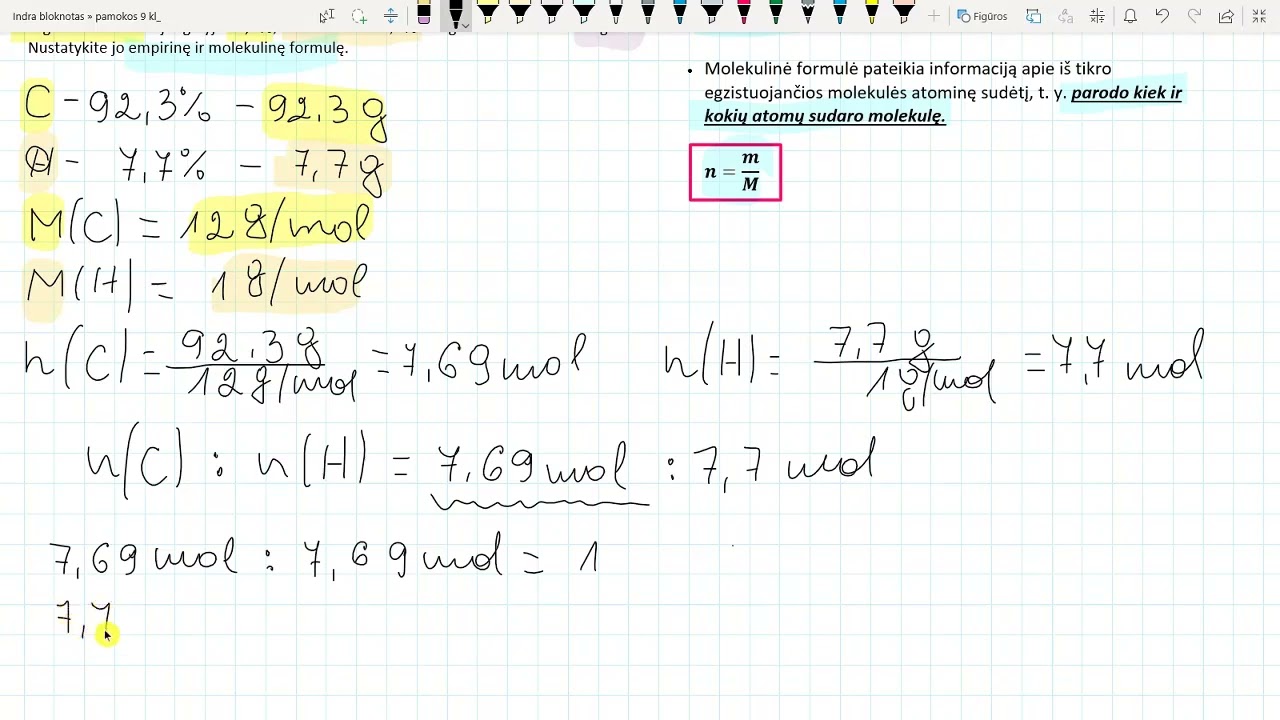 Indra bloknotas » pamokos 9 kl_
Figūros
Nustatykite jo empirinę ir molekulinę formulę.
• Molekulinė formulė pateikia informaciją apie iš tikro
egzistuojančios molekulės atominę sudėtį, t. y. parodo kiek ir
kokių atomų sudaro molekulę.
n = m/M
C – 92,3% – 92,3 g
H – 7,7% – 7,7 g
M(C) = 12 g/mol
M(H) = 1 g/mol
n(C) = 92,3 g / 12 g/mol = 7,69 mol
n(H) = 7,7 g / 1 g/mol = 7,7 mol
n(C) : n(H) = 7,69 mol : 7,7 mol
7,69 mol : 7,69 mol = 1
7,7